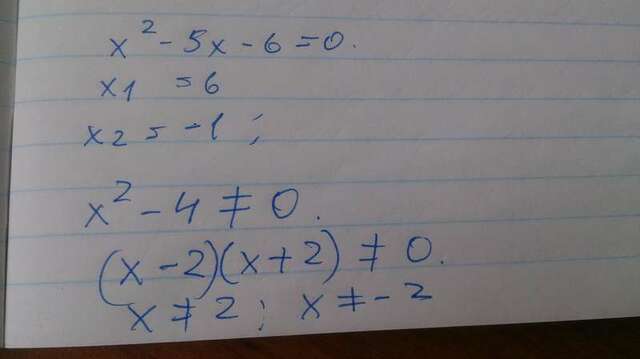 x² - 5x - 6 = 0.
x1 = 6
x2 = -1;
x² - 4 ≠ 0.
(x-2)(x+2) ≠ 0.
x ≠ 2; x ≠ -2